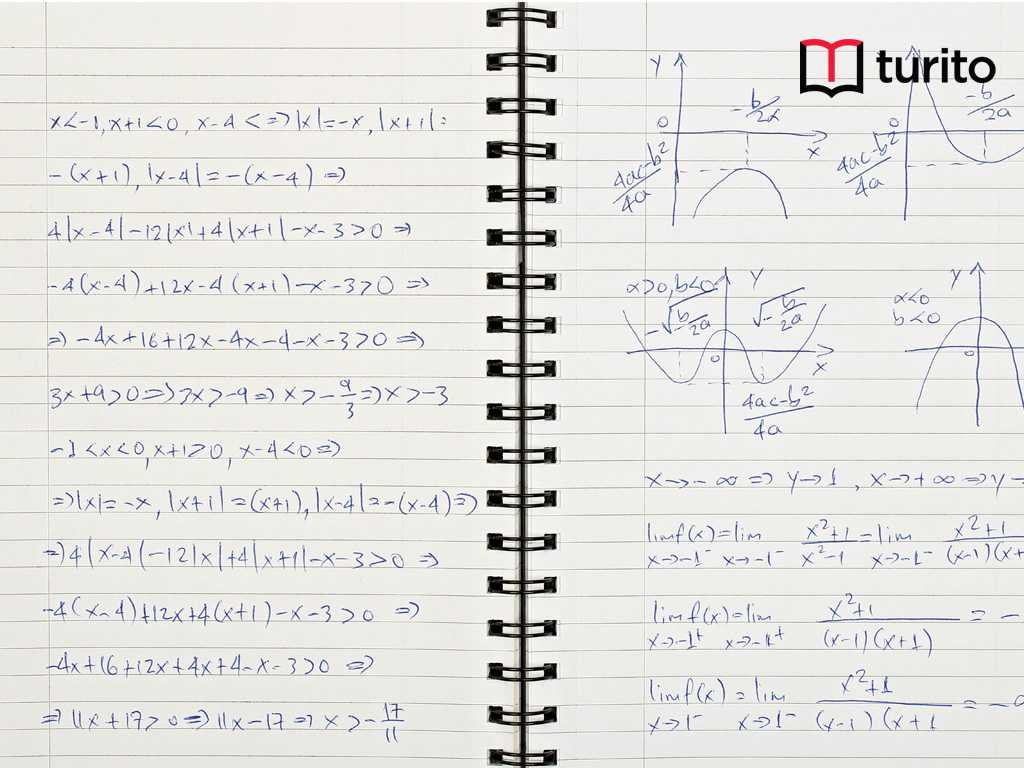 x<-1, x+1<0, x-4<=>|x|=-x, |x+1|=
-(x+1), |x-4|=-(x-4) =>
4|x-4|-12|x|+4|x+1|-x-3>0 =>
-4(x-4)+12x-4(x+1)-x-3>0 =>
=> -4x+16+12x-4x-4-x-3>0 =>
3x+9>0=>3x>-9=> x>-9/3=>x>-3
-1<x<0, x+1>0, x-4<0=>
=>|x|=-x, |x+1|=(x+1), |x-4|=-(x-4)=>
=>4|x-4|-12|x|+4|x+1|-x-3>0 =>
-4(x-4)+12x+4(x+1)-x-3>0 =>
-4x+16+12x+4x+4-x-3>0 =>
=> 11x+17>0=>11x-17=> x>-17/11
turito
y
-b/2a
0
x
4ac-b²/4a
-b/2a
0
4ac-b²/4a
a>0, b<0
y
-√-b/2a
√-b/2a
0
x
4ac-b²/4a
y
a<0
b<0
0
x→-∞ => y→1, x→+∞ => y→
lim f(x)=lim x²+1/x²-1=lim x²+1/(x-1)(x+
x→-1⁻ x→-1⁻ x→-1⁻
lim f(x)=lim x²+1/(x-1)(x+1) = -
x→-1⁺ x→-1⁺
lim f(x)=lim x²+1/(x-1)(x+1 = -
x→1⁻ x→1⁻